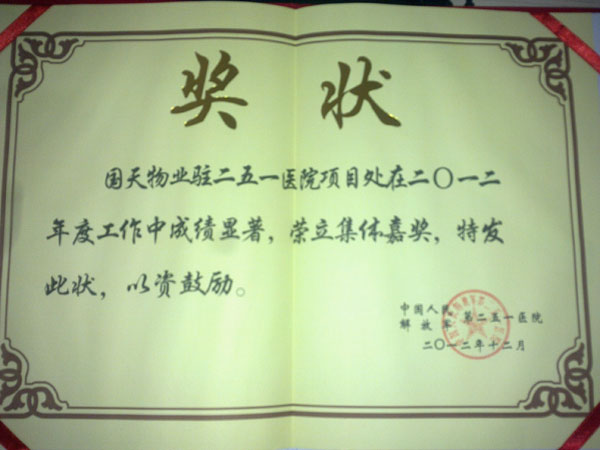 奖状
国天物业驻二五一医院项目处在二〇一二
年度工作中成绩显著，荣立集体嘉奖，特发
此状，以资鼓励。
中国人民
解放军 第二五一医院
二〇一二年十二月